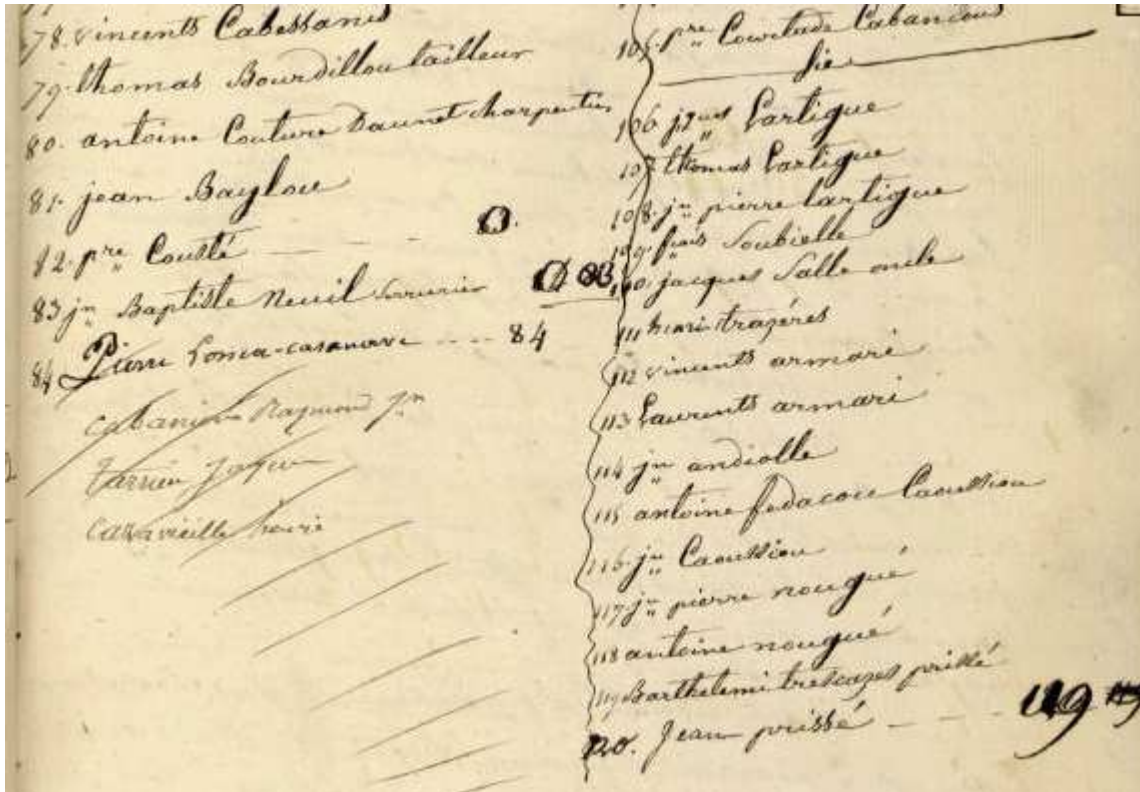 78. vincents Cabessanis
79. thomas Bourdillou tailleur
80. antoine Couture Daunet charpentier
81. jean Baylou
82. pre Cousté — — — 0.
83 jn Baptiste neuil Serrurier
84 Pierre casanave - - - - 84
Raymond jn
105. pre Courtade Cabandous
106. jques Lartigue
107 thomas Lartigue
108. jn pierre lartigue
109. fçois Soubielle
110. jacques Salle oncle
111 henri trazéres
112 vincents armari
113 Laurents armari
114 jn andiolle
115 antoine fedacou Caoussiou
116. jn Caoussiou
117 jn pierre nougué
118 antoine nougué
119 Barthelemi trescazes prissé
120. Jean prissé — — — 119